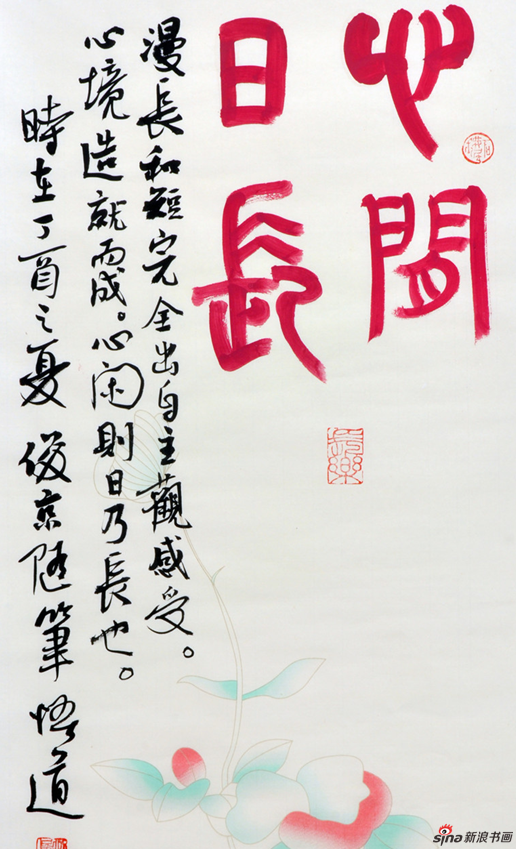 心閒
日長
漫長和短完全出自主觀感受。
心境造就而成。心闲則日乃長也。
時在丁酉之夏 俊京随筆 悟道
長樂
sina新浪书画